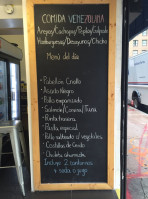 COMIDA VENEZOLANA
Arepas/Cachapas/Pepitos/Golfeado
Hamburguesas/Desayunos/Chicha
Menú del día
- Pabellón Criollo
- Asado Negro
- Pollo empanizado
- Salmón/Camarón/Tuna
- Punta trasera
- Pasta especial
- Pollo salteado c/ vegetales
- Costillas de Cerdo
- Chuleta ahumada
Incluye 2 contornos
+ soda o jugo